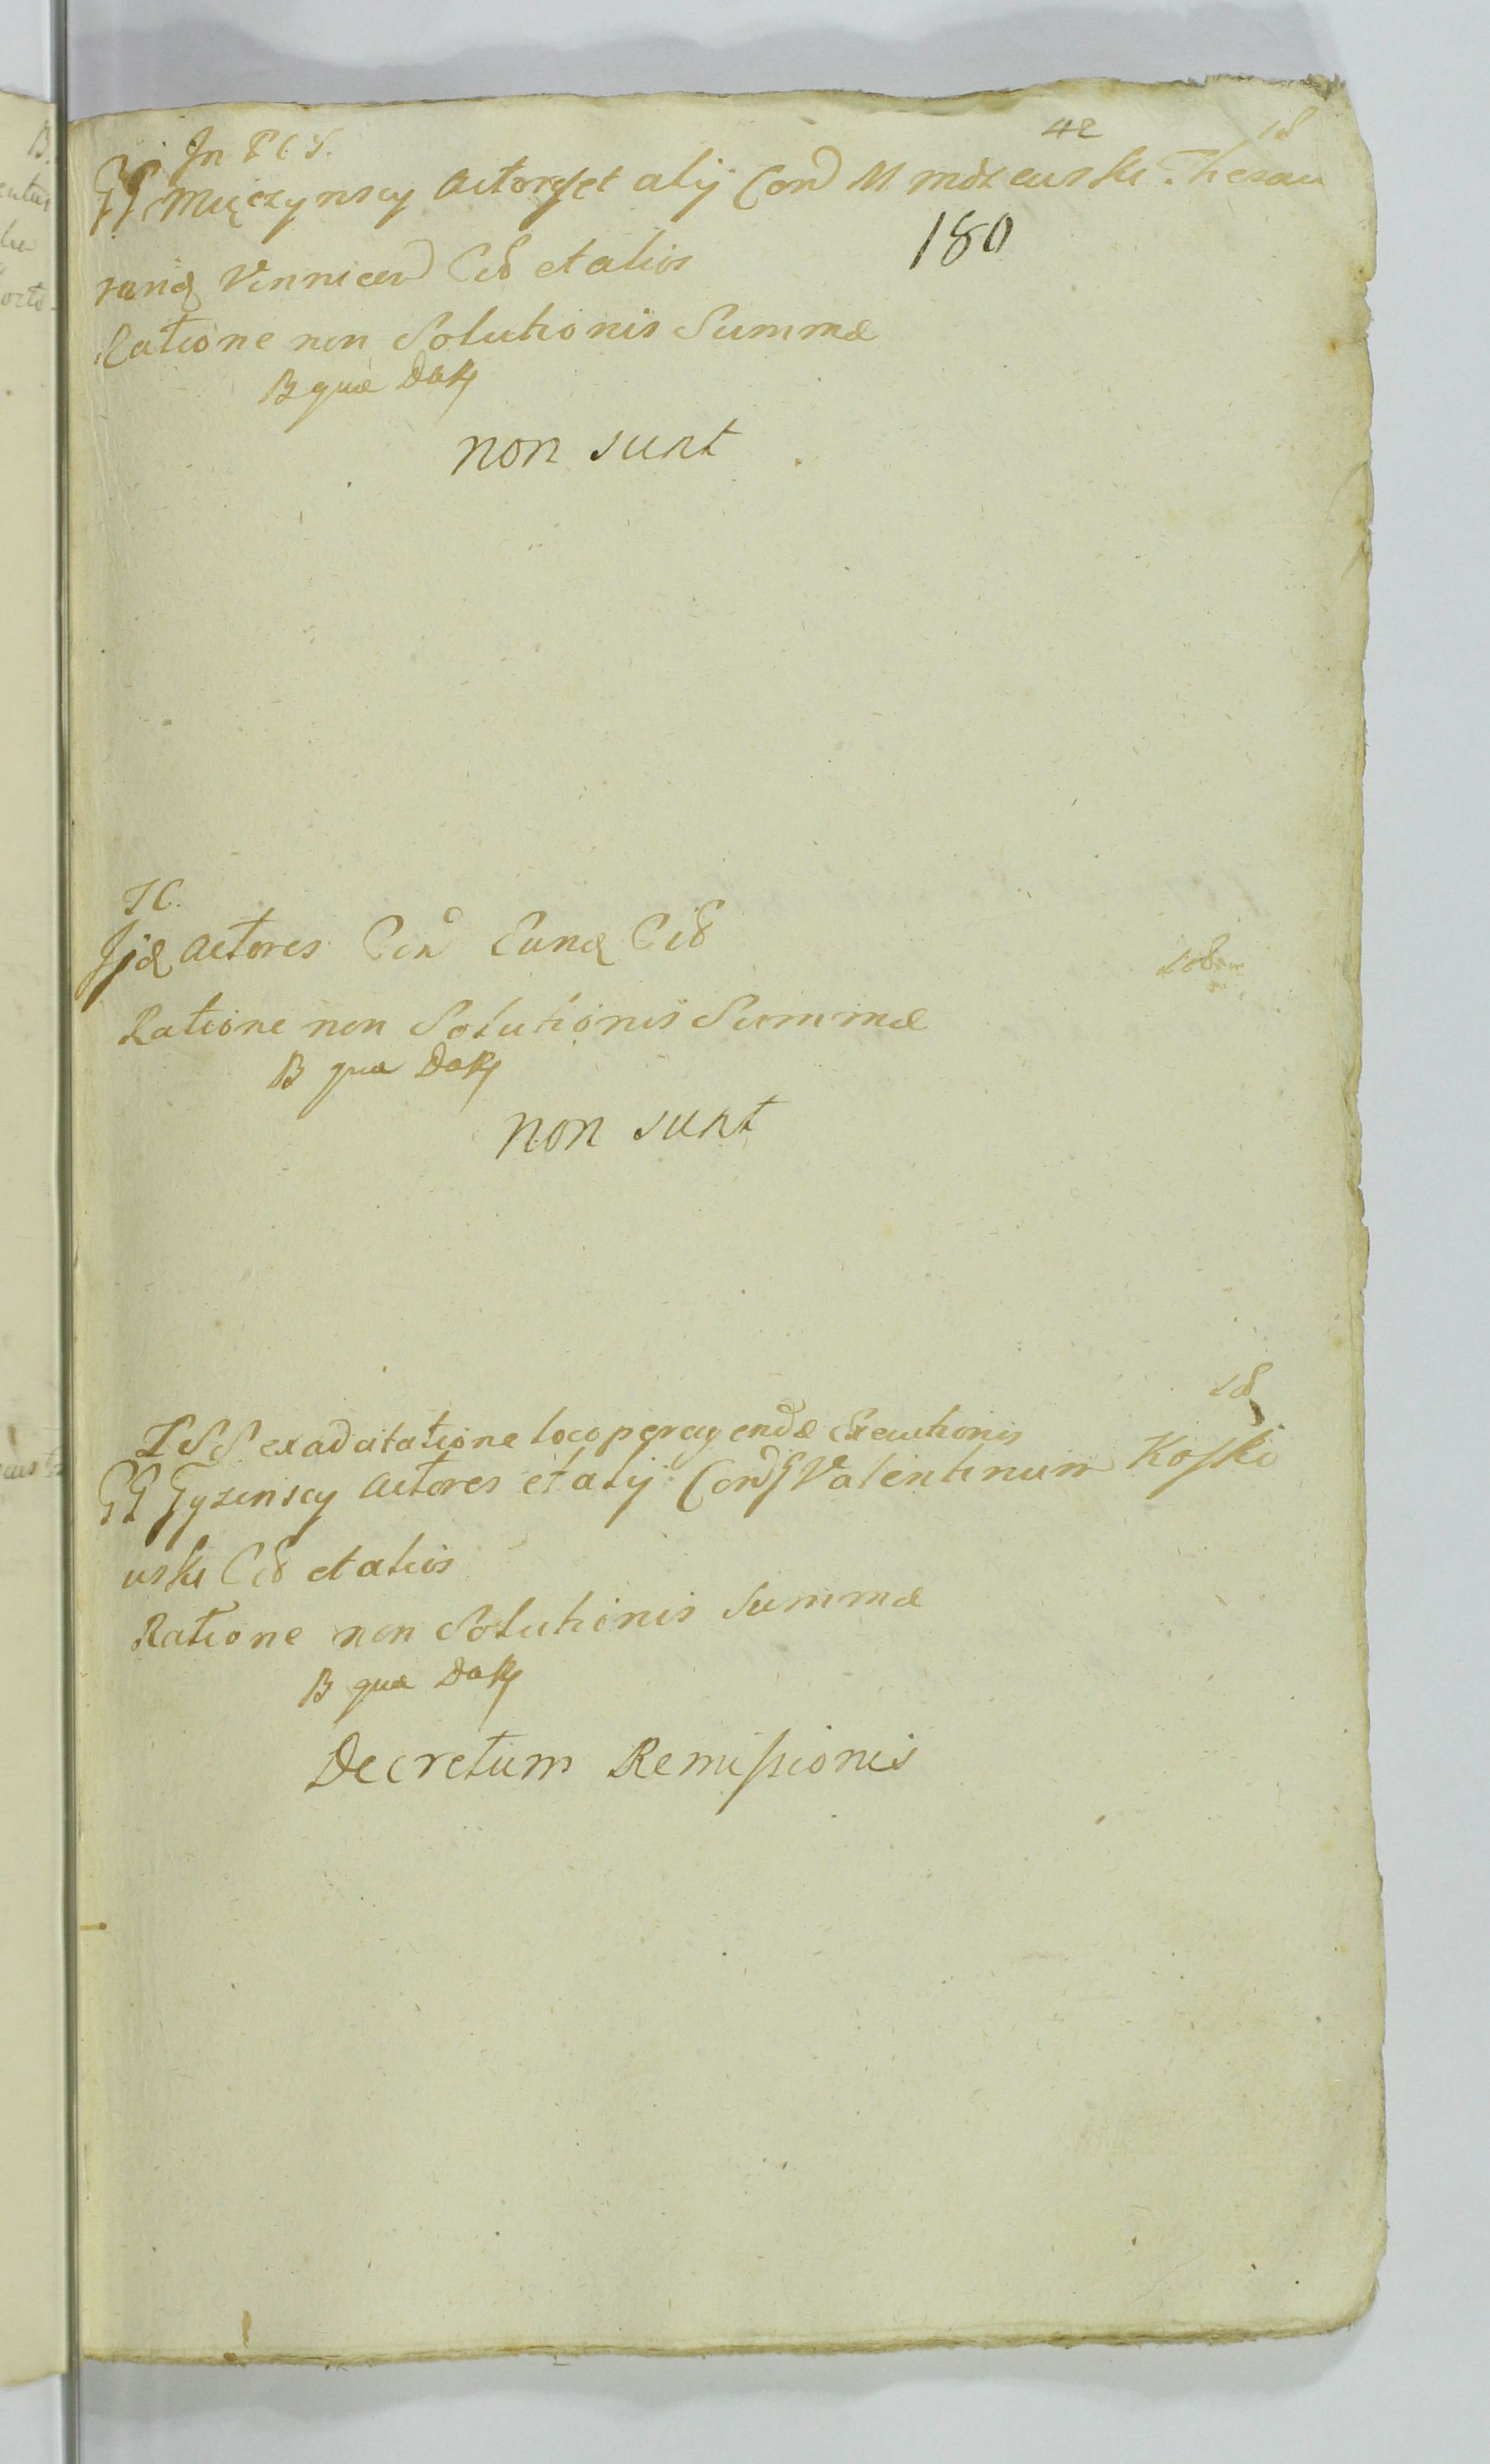 42 18
In P C S.
GG Mięczynscy Actores et alij Con M mdzewski Thesau
180
rariū Vinnicen Cit et alios
Ratione non Solutionis Summæ
B quæ
non sunt
TC.
Iid Actores Con Eund Cit
Ratione non Solutionis Summæ
B quæ
non sunt
18
ex adcitatione loco peragendæ Executionis
GG Gyzinscy Actores et alij Con G Valentinum Kosko
uski Cit et alios
Ratione non Solutionis Summæ
B quæ
Decretum Remissionis